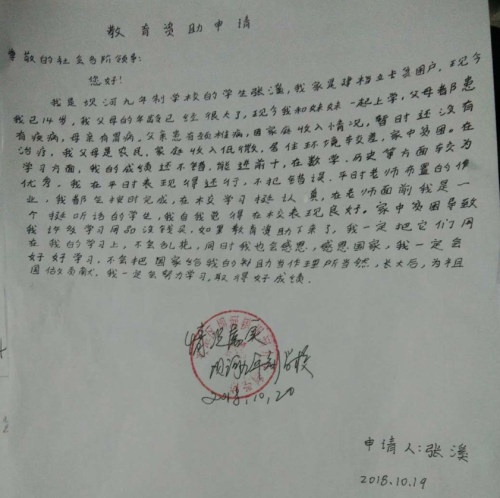 教育资助申请
尊敬的社会各阶领导:
您好!
我是坝河九年制学校的学生张溪,我家是建档立卡贫困户,现今
我已14岁,我父母的年龄已经很大了,现今我和妹妹一起上学,父母都患
有疾病,母亲有胃病,父亲患有颈椎病,因家庭收入情况,暂时还没有
治疗,我父母是农民,家庭收入低微,居住环境较差,家中贫困。在
学习方面,我的成绩还不错,能进前十,在数学、历史等方面较为
优秀,我在平时表现得还行,不犯错误,平时老师布置的作
业,我都能按时完成,在校学习挺认真,在老师面前我是一
个挺听话的学生,我自我觉得在校表现良好。家中贫困导致
我许多学习用品没钱买,如果教育资助下来了,我一定把它们用
在我的学习上,不会乱花,同时我也会感恩,感恩国家,我一定会
好好学习,不会把国家给我的利助当作理所当然,长大后,为祖
国做贡献,我一定会努力学习,取得好成绩.
情况属实
坝河九年制学校
2018,10,20
申请人:张溪
2018.10.19